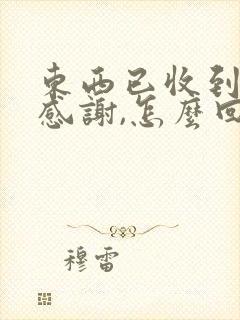 東西已收到
感謝,怎麼回
穆雷